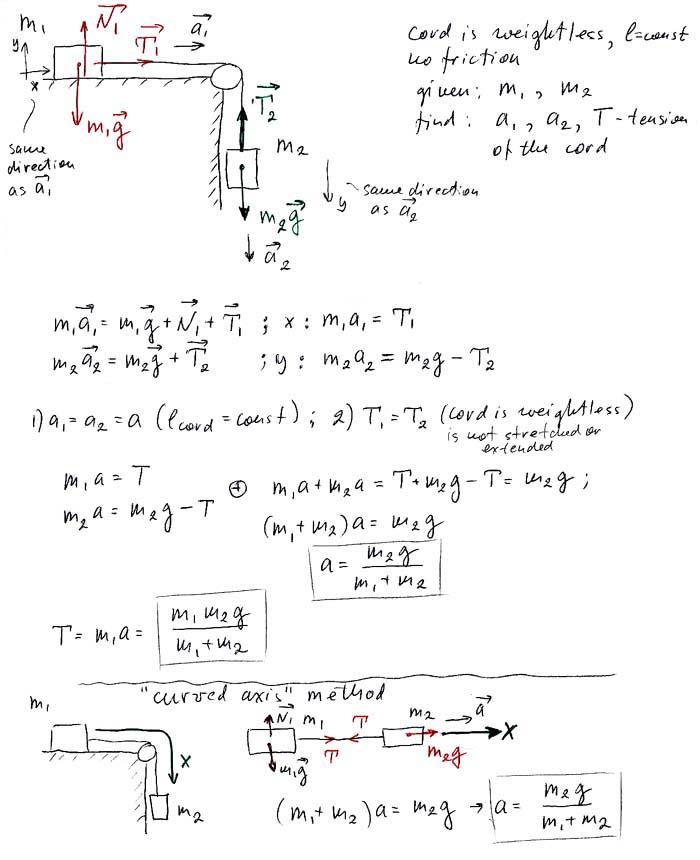 m₁ N⃗₁ a⃗₁
y T⃗₁
x
m₁g⃗
same
direction
as a⃗₁
T⃗₂
m₂
m₂g⃗
a⃗₂
y same direction
as a⃗₂
cord is weightless, ℓ=const
no friction
given: m₁, m₂
find: a₁, a₂, T-tension
of the cord
m₁a⃗₁ = m₁g⃗ + N⃗₁ + T⃗₁ ; x: m₁a₁ = T₁
m₂a⃗₂ = m₂g⃗ + T⃗₂ ; y: m₂a₂ = m₂g − T₂
1) a₁ = a₂ = a (ℓcord = const) ; 2) T₁ = T₂ (cord is weightless)
is not stretched or
extended
m₁a = T
m₂a = m₂g − T
⊕ m₁a + m₂a = T + m₂g − T = m₂g ;
(m₁ + m₂)a = m₂g
a = m₂g / (m₁ + m₂)
T = m₁a = m₁m₂g / (m₁ + m₂)
"curved axis" method
m₁
x
m₂
N⃗₁ m₁ T m₂ a⃗
T m₂g x
m₁g⃗
(m₁ + m₂)a = m₂g → a = m₂g / (m₁ + m₂)